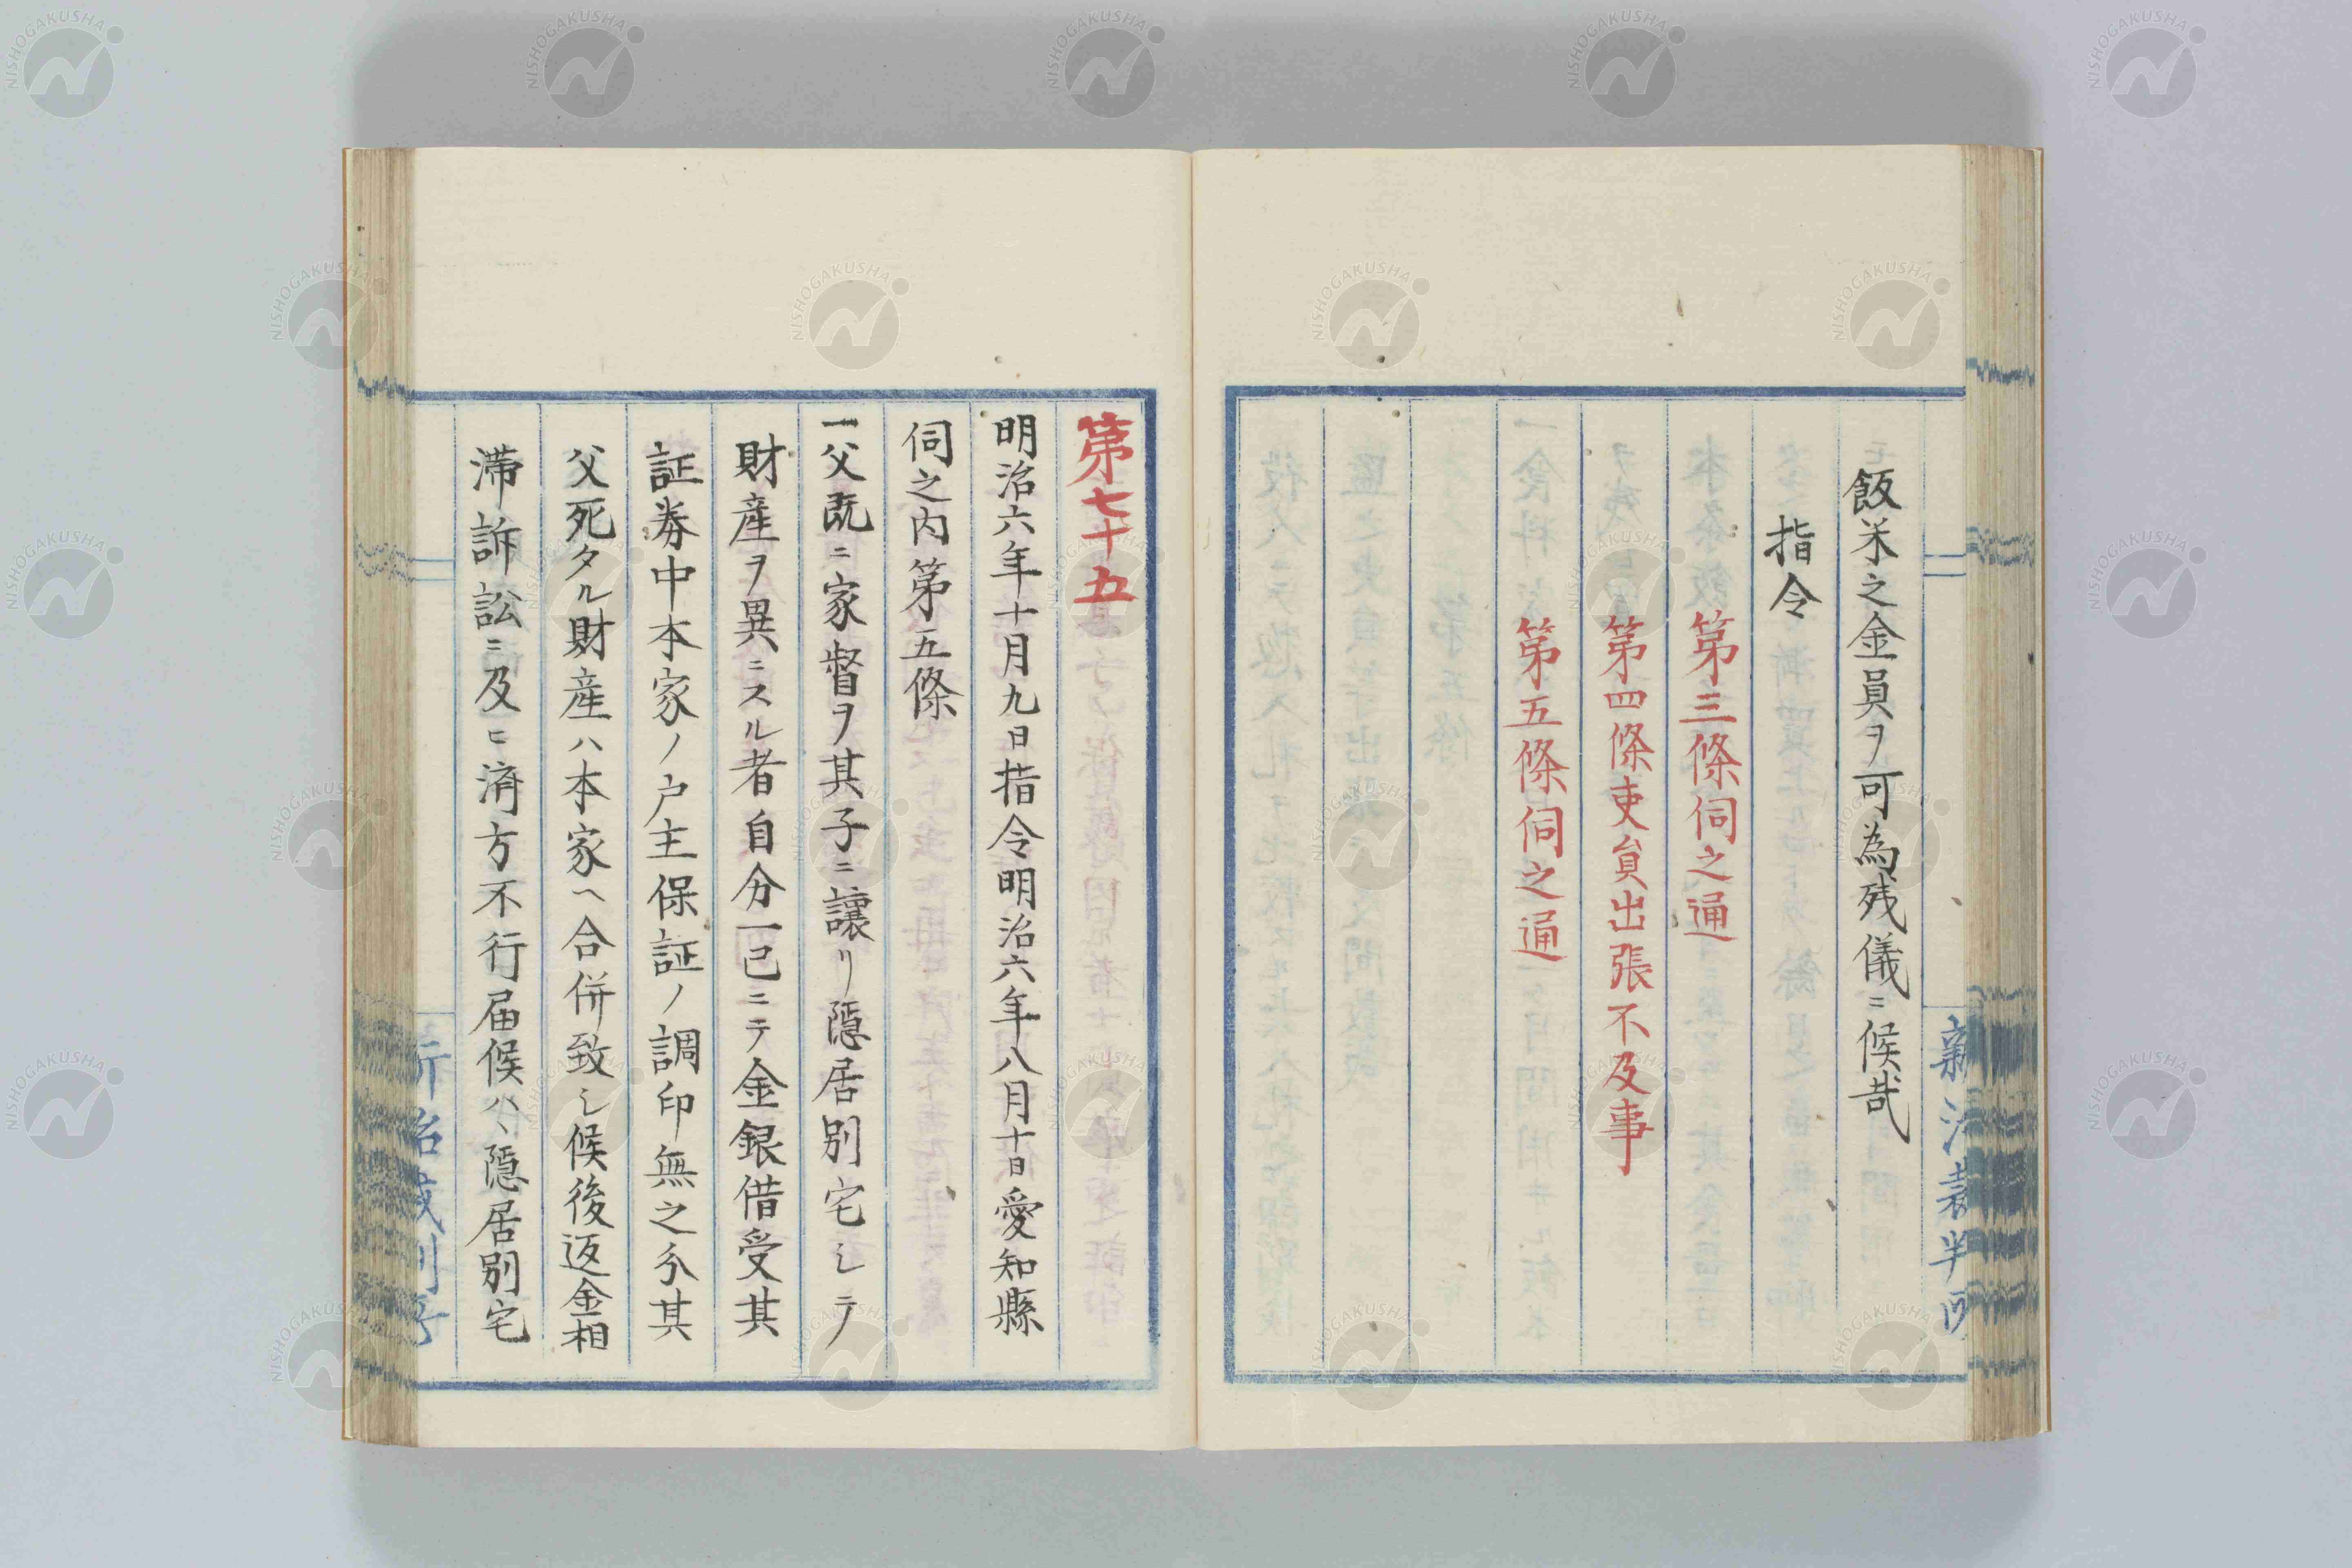 飯米之金員ヲ可為残儀ニ候哉
指令
第三條伺之通
第四條吏負出張不及事
第五條伺之通
第七十五
明治六年十月九日指令明治六年八月十日愛知縣
伺之内第五條
一父既ニ家督ヲ其子ニ讓リ隠居別宅シテ
財産ヲ異ニスル者自分一已ニテ金銀借受其
証券中本家ノ戸主保証ノ調印無之分其
父死タル財産ハ本家ヘ合併致シ候後返金相
滞訴訟ニ及ヒ済方不行届候ハヽ隠居別宅
NISHOGAKUSHA